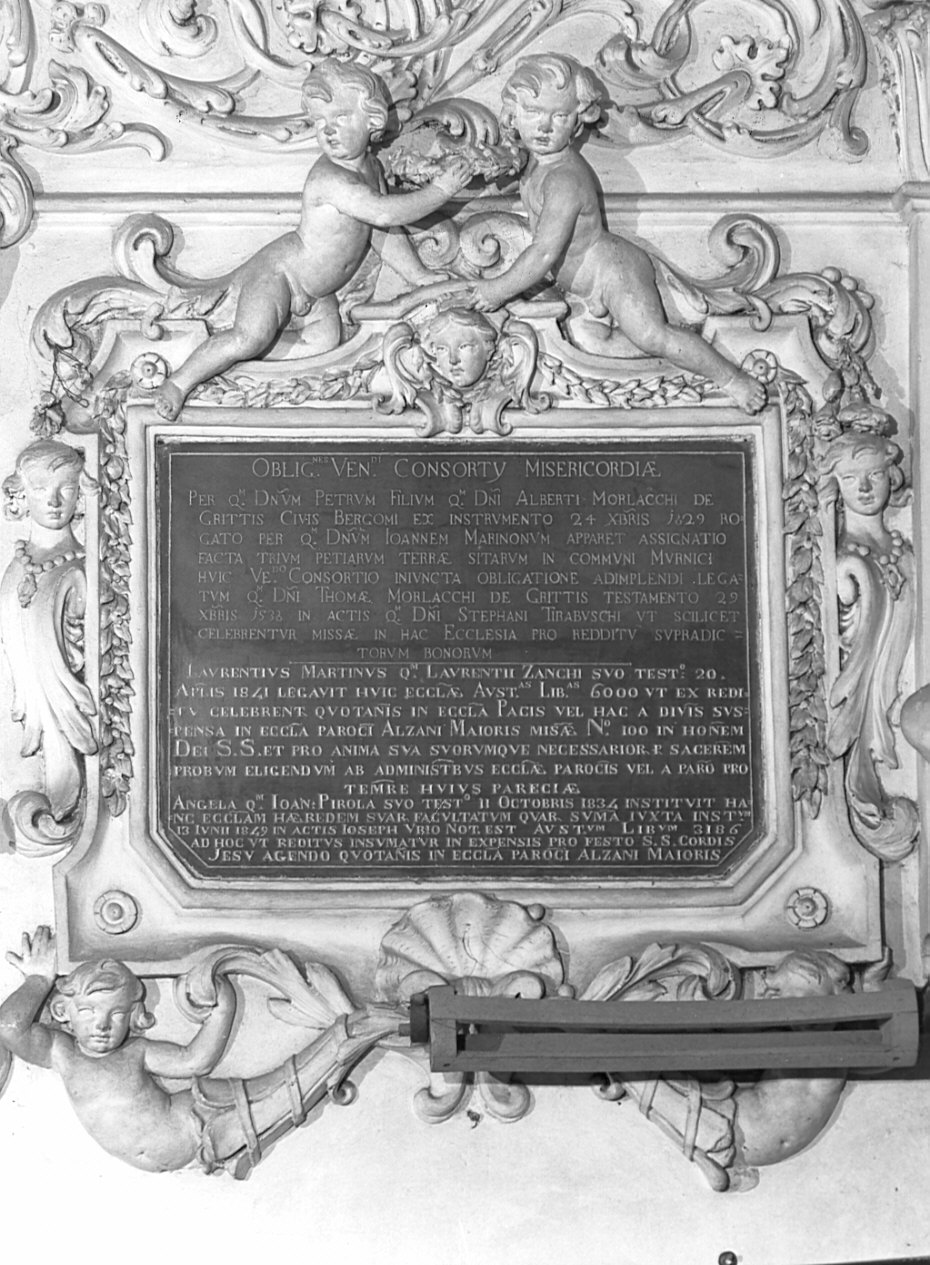 OBLIG.NES VEN.DI CONSORTY MISERICORDIÆ
PER Q.M DNVM PETRVM FILIVM Q.M DNI ALBERTI MORLACCHI DE
GRITTIS CIVIS BERGOMI EX INSTRVMENTO 24 XBRIS 1829 RO-
GATO PER Q.M DNVM IOANNEM MARINONVM APPARET ASSIGNATIO
FACTA TRIVM PETIARVM TERRÆ SITARVM IN COMMVNI MVRNICI
HVIC CONSORTIO INIVNCTA OBLIGATIONE ADIMPLENDI LEGA=
TVM Q.M DNI THOMÆ MORLACCHI DE GRITTIS TESTAMENTO 29
XBRIS 1538 IN ACTIS Q.M DNI STEPHANI TIRABVSCHI VT SCILICET
CELEBRENTVR MISSÆ IN HAC ECCLESIA PRO REDDITV SVPRADIC=
TORVM BONORVM
LAVRENTIVS MARTINVS Q.M LAVRENTII ZANCHI SVO TEST.O 20.
APLIS 1841 LEGAVIT HVIC ECCLÆ AVST.AS LIB.AS 6000 VT EX REDI=
TV CELEBRENT. QVOTANIS IN ECCLA PACIS VEL HAC A DIVIS SVS=
PENSA IN ECCLA PAROCI ALZANI MAIORIS MISÆ N.O 100 IN HONEM
DEI S.S. ET PRO ANIMA SVA SVORVMQVE NECESSARIOR.R SACEREM
PROBVM ELIGENDVM AB ADMINISTRBVS ECCLÆ PAROCIS VEL A PARO PRO
TEMRE HVIVS PARECIÆ
ANGELA Q.M IOAN: PIROLA SVO TEST.O 11 OCTOBRIS 1834 INSTITVIT HA=
NC ECCLAM HÆREDEM SVAR. FACVLTATVM QVAR. SVMA IVXTA INST.VM
13 IVNII 1849 IN ACTIS IOSEPH VRIO NOT. EST AVST.VM LIBVM 3186
AD HOC VT REDITVS INSVMATVR IN EXPENSIS PRO FESTO S.S. CORDIS
JESV AGENDO QVOTANIS IN ECCLA PAROCI ALZANI MAIORIS